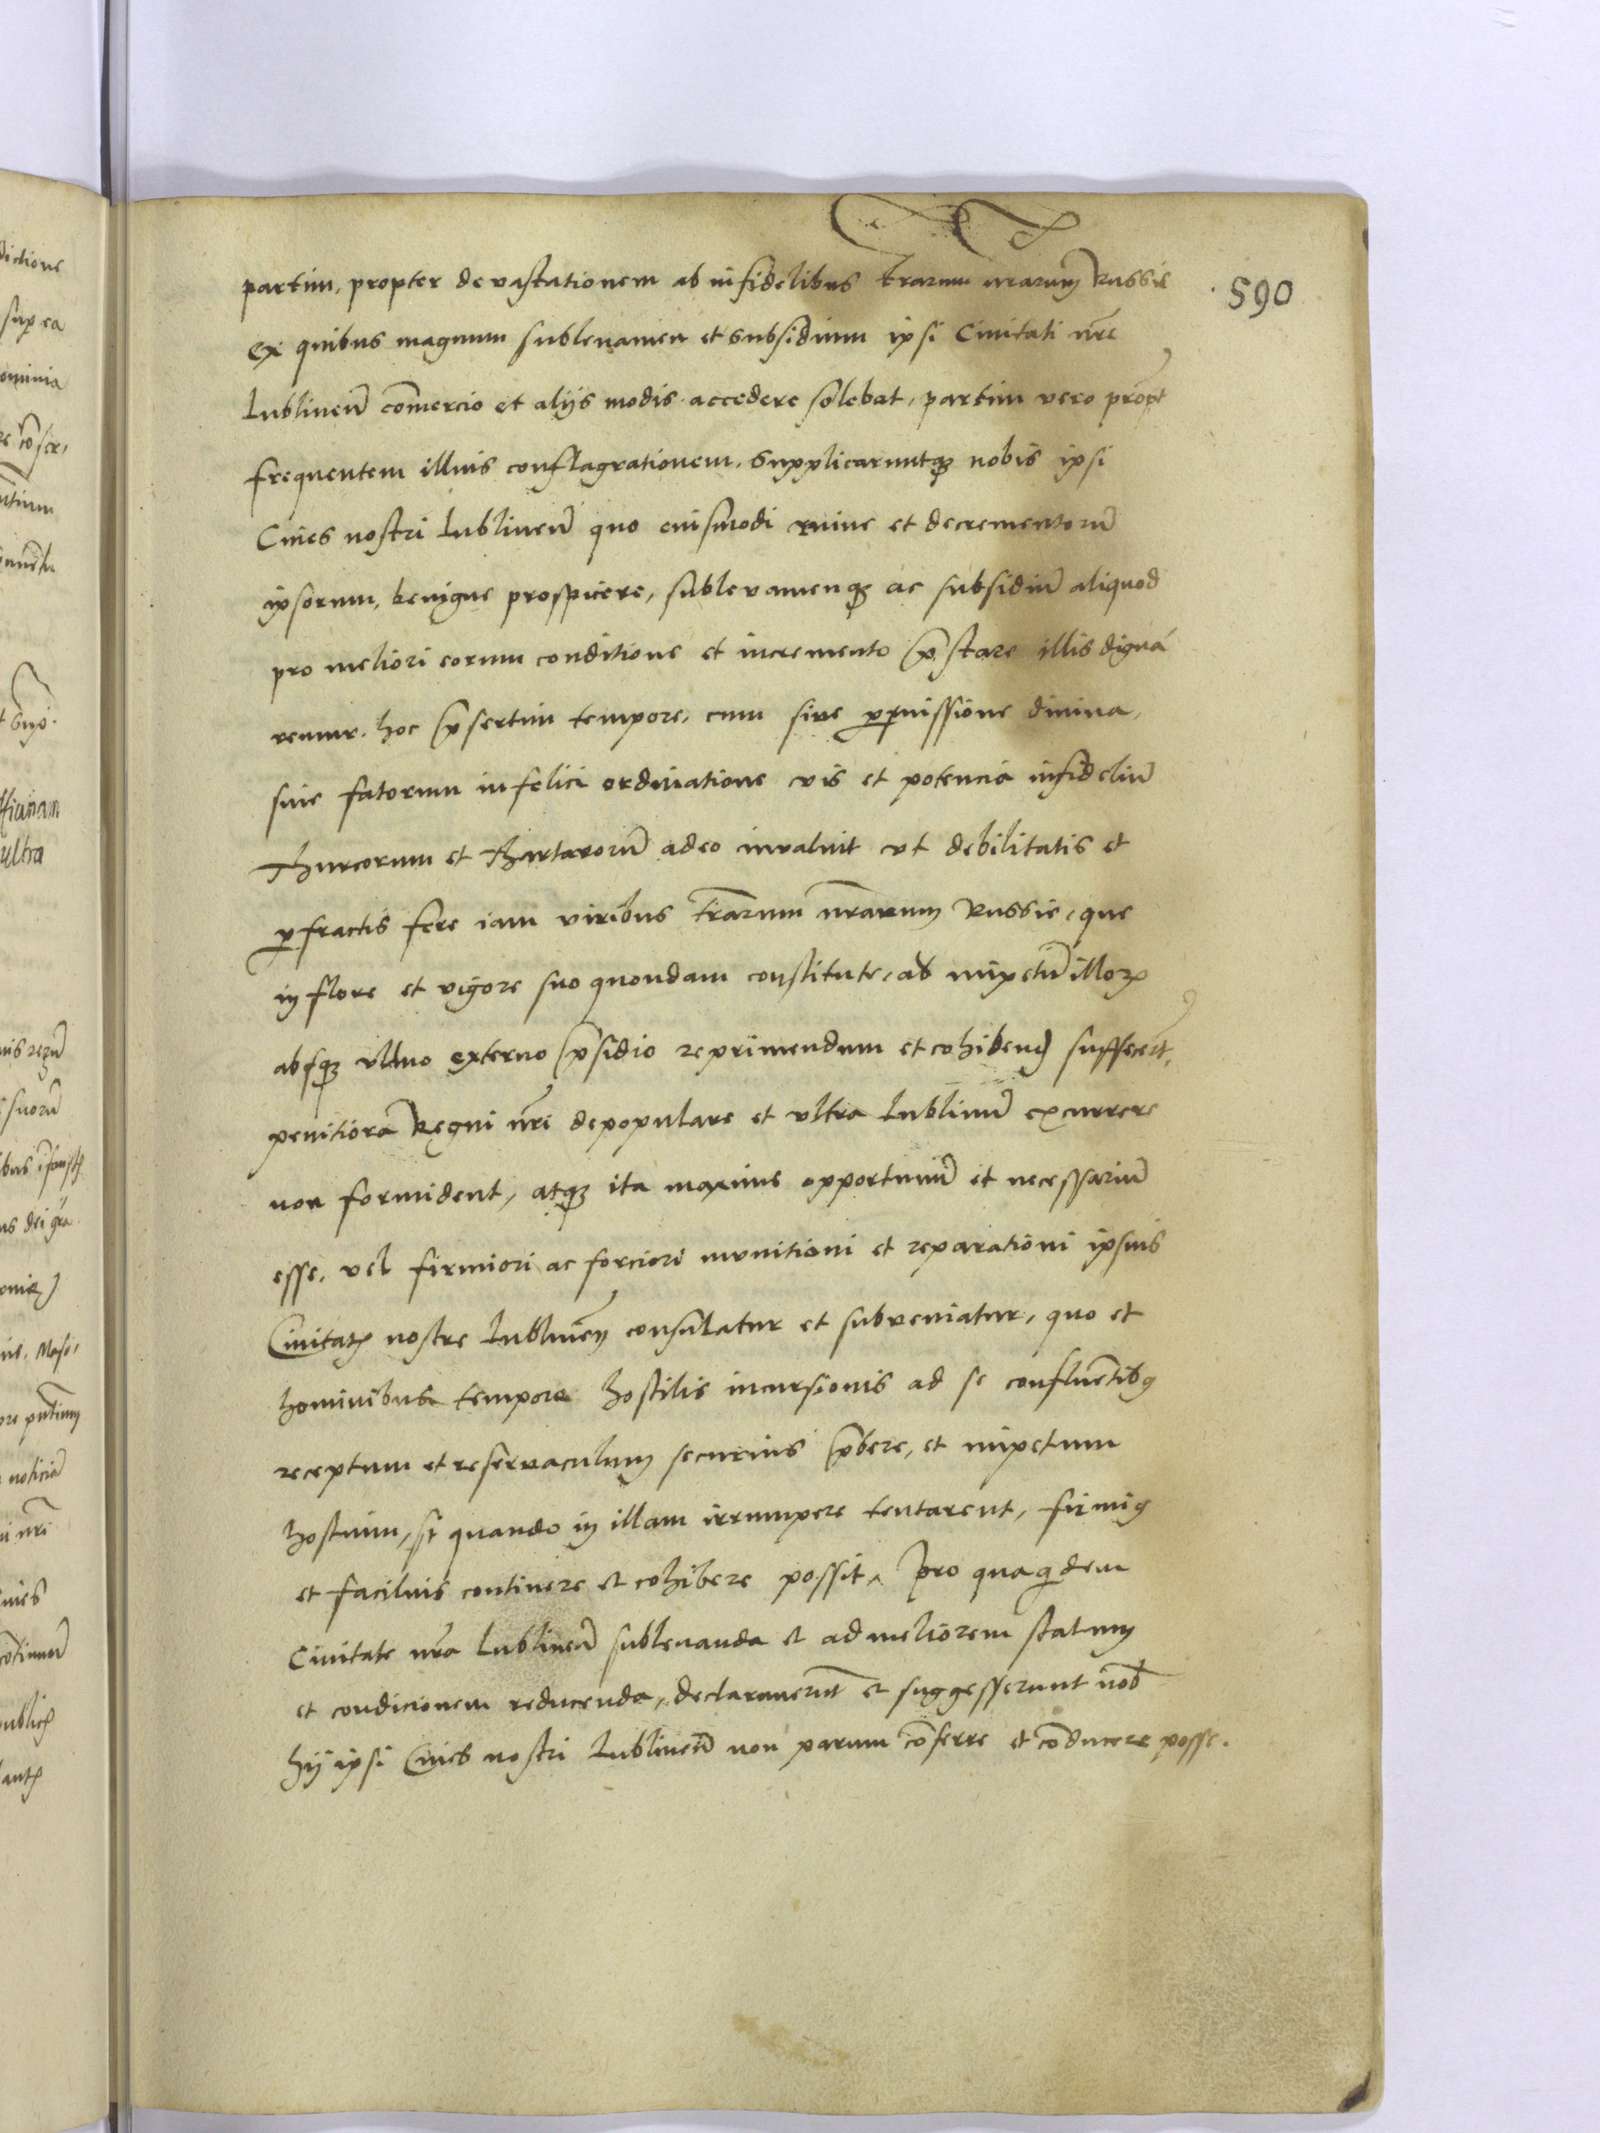 590
partim, propter devastationem ab infidelibus trarum nrarum Russie
ex quibus magnum sublevamen et subsidium ipsi Civitati nre
Lublinen̄ com̄ercio et alijs modis accedere solebat, partim vero propt
frequentem illius conflagrationem, supplicaruntqz nobis ipsi
Cives nostri Lublinen̄ quo eiusmodi ruine et decrementorū
ipsorum, benigne prospicere, sublevamenqz ac subsidiū aliquod
pro meliori eorum conditione et incremento p̄stare illis dignā
remur. hoc p̄sertim tempore, cum sive permissione divina,
sive fatorum infelici ordinatione vis et potencia infideliū
Thurcorum et Thartarorū adeo invaluit vt debilitatis et
perfractis fere iam viribus tr̄arum nr̄arum Russie, que
in flore et vigore suo quondam constitute, ad impetū illorꝫ
absqz ullo externo p̄sidio reprimendum et cohibend sufferert,
penitiora Regni nr̄i depopulare et vltra Lublinū excurrere
non formident, atqz ita maxime opportunū et necessariū
esse, vel firmiori ac forciori munitioni et reparationi ipsius
Civitatꝭ nostre Lublinen̄ consulatur et subveniatur, quo et
hominibus tempore hostilis incursionis ad se confluētibꝰ
receptum et reservaculum securius p̄bere, et impetum
hostium, si quando in illam irrumpere tentarent, firmiꝰ
et facilius continere et cohibere possit, Pro qua qidem
Civitate nr̄a Lublinen̄ sublevanda et ad meliorem statum
et condicionem reducenda, declaraverūt et suggesserunt nob̄
hij ipsi Cives nostri Lublinen̄ non parum cōferre et cōducere posse.